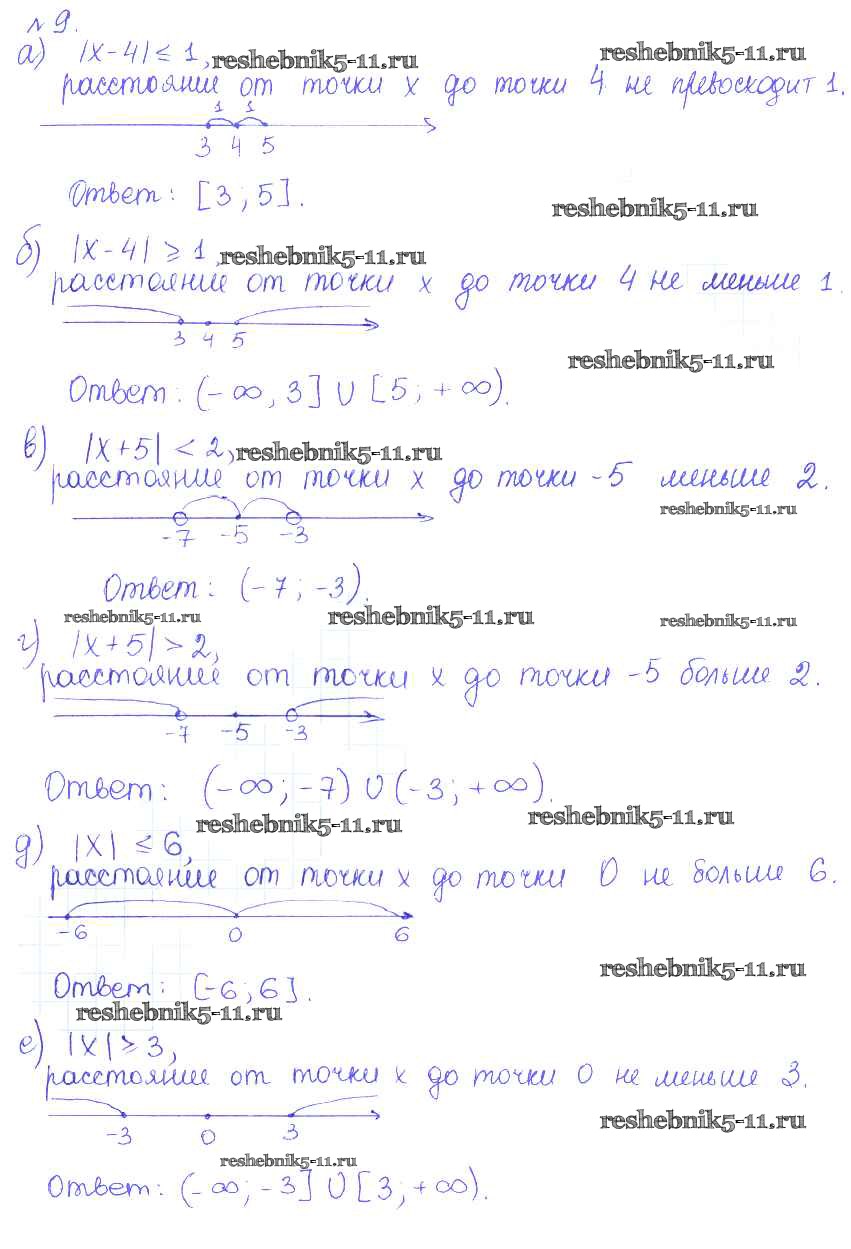 № 9.
а) |x-4| ≤ 1, reshebnik5-11.ru reshebnik5-11.ru
расстояние от точки x до точки 4 не превосходит 1.
1 1
3 4 5
Ответ: [3; 5].
reshebnik5-11.ru
б) |x-4| ≥ 1, reshebnik5-11.ru
расстояние от точки x до точки 4 не меньше 1.
3 4 5
reshebnik5-11.ru
Ответ: (-∞, 3] ∪ [5; +∞).
в) |x+5| < 2, reshebnik5-11.ru
расстояние от точки x до точки -5 меньше 2.
reshebnik5-11.ru
-7 -5 -3
Ответ: (-7; -3).
reshebnik5-11.ru reshebnik5-11.ru reshebnik5-11.ru
г) |x+5| > 2,
расстояние от точки x до точки -5 больше 2.
-7 -5 -3
Ответ: (-∞; -7) ∪ (-3; +∞).
reshebnik5-11.ru reshebnik5-11.ru
д) |x| ≤ 6,
расстояние от точки x до точки 0 не больше 6.
-6 0 6
reshebnik5-11.ru
Ответ: [-6; 6].
reshebnik5-11.ru
е) |x| ≥ 3,
расстояние от точки x до точки 0 не меньше 3.
reshebnik5-11.ru
-3 0 3
reshebnik5-11.ru
Ответ: (-∞; -3] ∪ [3; +∞).